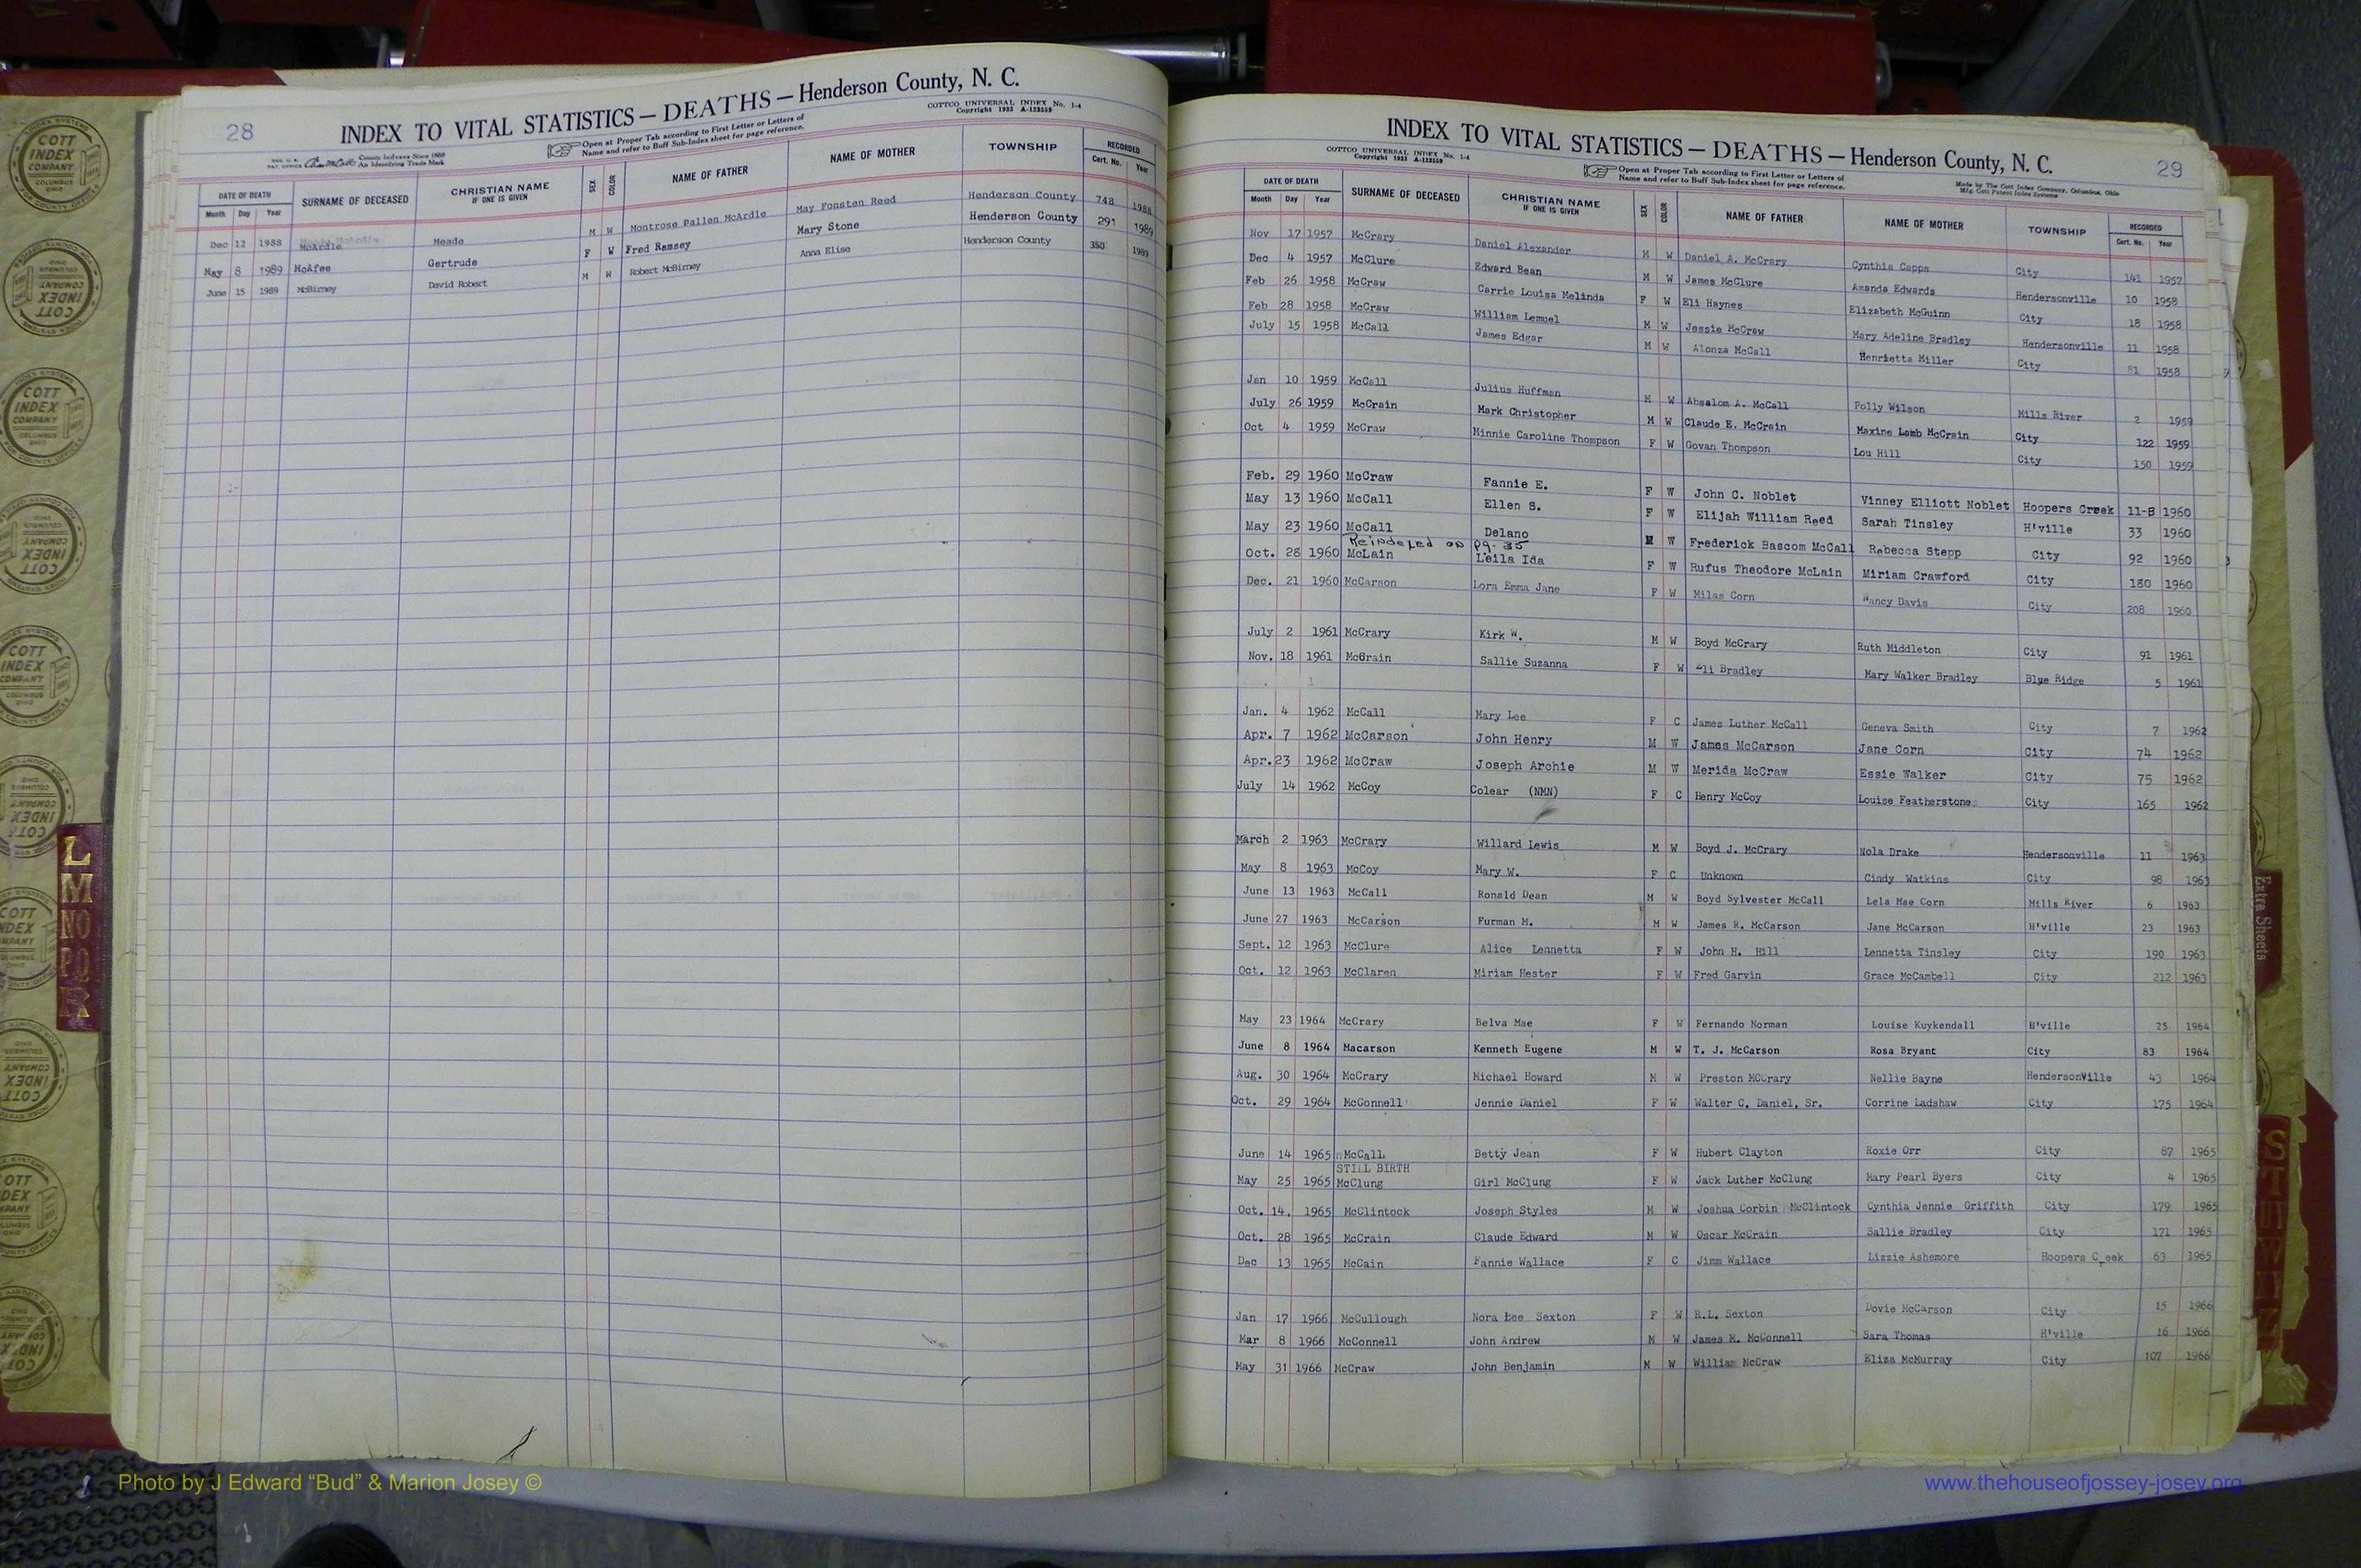 28
INDEX TO VITAL STATISTICS — DEATHS — Henderson County, N. C.
COTTCO UNIVERSAL INDEX No. 1-4
Copyright 1933 A-122559
Open at Proper Tab according to First Letter or Letters of
Name and refer to Buff Sub-Index sheet for page reference.
County Indexes Since 1888
An Identifying Trade Mark
DATE OF DEATH SURNAME OF DECEASED CHRISTIAN NAME IF ONE IS GIVEN SEX COLOR NAME OF FATHER NAME OF MOTHER TOWNSHIP RECORDED
Month Day Year Cert. No. Year
Dec 12 1988 McArdle Meade M W Montrose Pallen McArdle May Fonsten Reed Henderson County 748 1988
May 8 1989 McAfee Gertrude F W Fred Ramsey Mary Stone Henderson County 291 1989
June 15 1989 McBirney David Robert M W Robert McBirney Anna Elise Henderson County 350 1989
INDEX TO VITAL STATISTICS — DEATHS — Henderson County, N. C.
29
COTTCO UNIVERSAL INDEX No. 1-4
Copyright 1933 A-122559
Open at Proper Tab according to First Letter or Letters of
Name and refer to Buff Sub-Index sheet for page reference.
Made by The Cott Index Company, Columbus, Ohio
Mfg. Cott Patent Index Systems
DATE OF DEATH SURNAME OF DECEASED CHRISTIAN NAME IF ONE IS GIVEN SEX COLOR NAME OF FATHER NAME OF MOTHER TOWNSHIP RECORDED
Month Day Year Cert. No. Year
Nov 17 1957 McCrary Daniel Alexander M W Daniel A. McCrary Cynthia Capps City 141 1957
Dec 4 1957 McClure Edward Bean M W James McClure Amanda Edwards Hendersonville 10 1958
Feb 26 1958 McCraw Carrie Louisa Melinda F W Eli Haynes Elizabeth McGuinn City 18 1958
Feb 28 1958 McCraw William Lemuel M W Jessie McCraw Mary Adeline Bradley Hendersonville 11 1958
July 15 1958 McCall James Edgar M W Alonza McCall Henrietta Miller City 81 1958
Jan 10 1959 McCall Julius Huffman M W Absalom A. McCall Polly Wilson Mills River 2 1959
July 26 1959 McCrain Mark Christopher M W Claude E. McCrain Maxine Lamb McCrain City 122 1959
Oct 4 1959 McCraw Minnie Caroline Thompson F W Govan Thompson Lou Hill City 150 1959
Feb. 29 1960 McCraw Fannie E. F W John C. Noblet Vinney Elliott Noblet Hoopers Creek 11-B 1960
May 13 1960 McCall Ellen S. F W Elijah William Reed Sarah Tinsley H'ville 33 1960
May 23 1960 McCall Delano M W Frederick Bascom McCall Rebecca Stepp City 92 1960
Reindexed on pg. 35
Oct. 28 1960 McLain Leila Ida F W Rufus Theodore McLain Miriam Crawford City 180 1960
Dec. 21 1960 McCarson Lora Emma Jane F W Milas Corn Nancy Davis City 208 1960
July 2 1961 McCrary Kirk W. M W Boyd McCrary Ruth Middleton City 91 1961
Nov. 18 1961 McCrain Sallie Suzanna F W Eli Bradley Mary Walker Bradley Blue Ridge 5 1961
Jan. 4 1962 McCall Mary Lee F C James Luther McCall Geneva Smith City 7 1962
Apr. 7 1962 McCarson John Henry M W James McCarson Jane Corn City 74 1962
Apr. 23 1962 McCraw Joseph Archie M W Merida McCraw Essie Walker City 75 1962
July 14 1962 McCoy Colear (NMN) F C Henry McCoy Louise Featherstone City 165 1962
March 2 1963 McCrary Willard Lewis M W Boyd J. McCrary Nola Drake Hendersonville 11 1963
May 8 1963 McCoy Mary W. F C Unknown Cindy Watkins City 98 1963
June 13 1963 McCall Ronald Dean M W Boyd Sylvester McCall Lela Mae Corn Mills River 6 1963
June 27 1963 McCarson Furman M. M W James R. McCarson Jane McCarson H'ville 23 1963
Sept. 12 1963 McClure Alice Lennetta F W John H. Hill Lennetta Tinsley City 190 1963
Oct. 12 1963 McClaren Miriam Hester F W Fred Garvin Grace McCambell City 212 1963
May 23 1964 McCrary Belva Mae F W Fernando Norman Louise Kuykendall H'ville 25 1964
June 8 1964 Macarson Kenneth Eugene M W T. J. McCarson Rosa Bryant City 83 1964
Aug. 30 1964 McCrary Michael Howard M W Preston MCCrary Nellie Bayne HendersonVille 43 1964
Oct. 29 1964 McConnell Jennie Daniel F W Walter C. Daniel, Sr. Corrine Ladshaw City 175 1964
June 14 1965 McCall Betty Jean F W Hubert Clayton Roxie Orr City 87 1965
STILL BIRTH
May 25 1965 McClung Girl McClung F W Jack Luther McClung Mary Pearl Byers City 4 1965
Oct. 14. 1965 McClintock Joseph Styles M W Joshua Corbin McClintock Cynthia Jennie Griffith City 179 1965
Oct. 28 1965 McCrain Claude Edward M W Oscar McCrain Sallie Bradley City 171 1965
Dec 13 1965 McCain Fannie Wallace F C Jimm Wallace Lizzie Ashemore Hoopers Creek 63 1965
Jan 17 1966 McCullough Nora Lee Sexton F W R.L. Sexton Dovie McCarson City 15 1966
Mar 8 1966 McConnell John Andrew M W James M. McConnell Sara Thomas H'ville 16 1966
May 31 1966 McCraw John Benjamin M W William McCraw Eliza McMurray City 107 1966
L
M
NO
PQ
R
Extra Sheets
S
T
COTT
INDEX
COMPANY
COLUMBUS
OHIO
Photo by J Edward “Bud” & Marion Josey ©
www.thehouseofjossey-josey.org